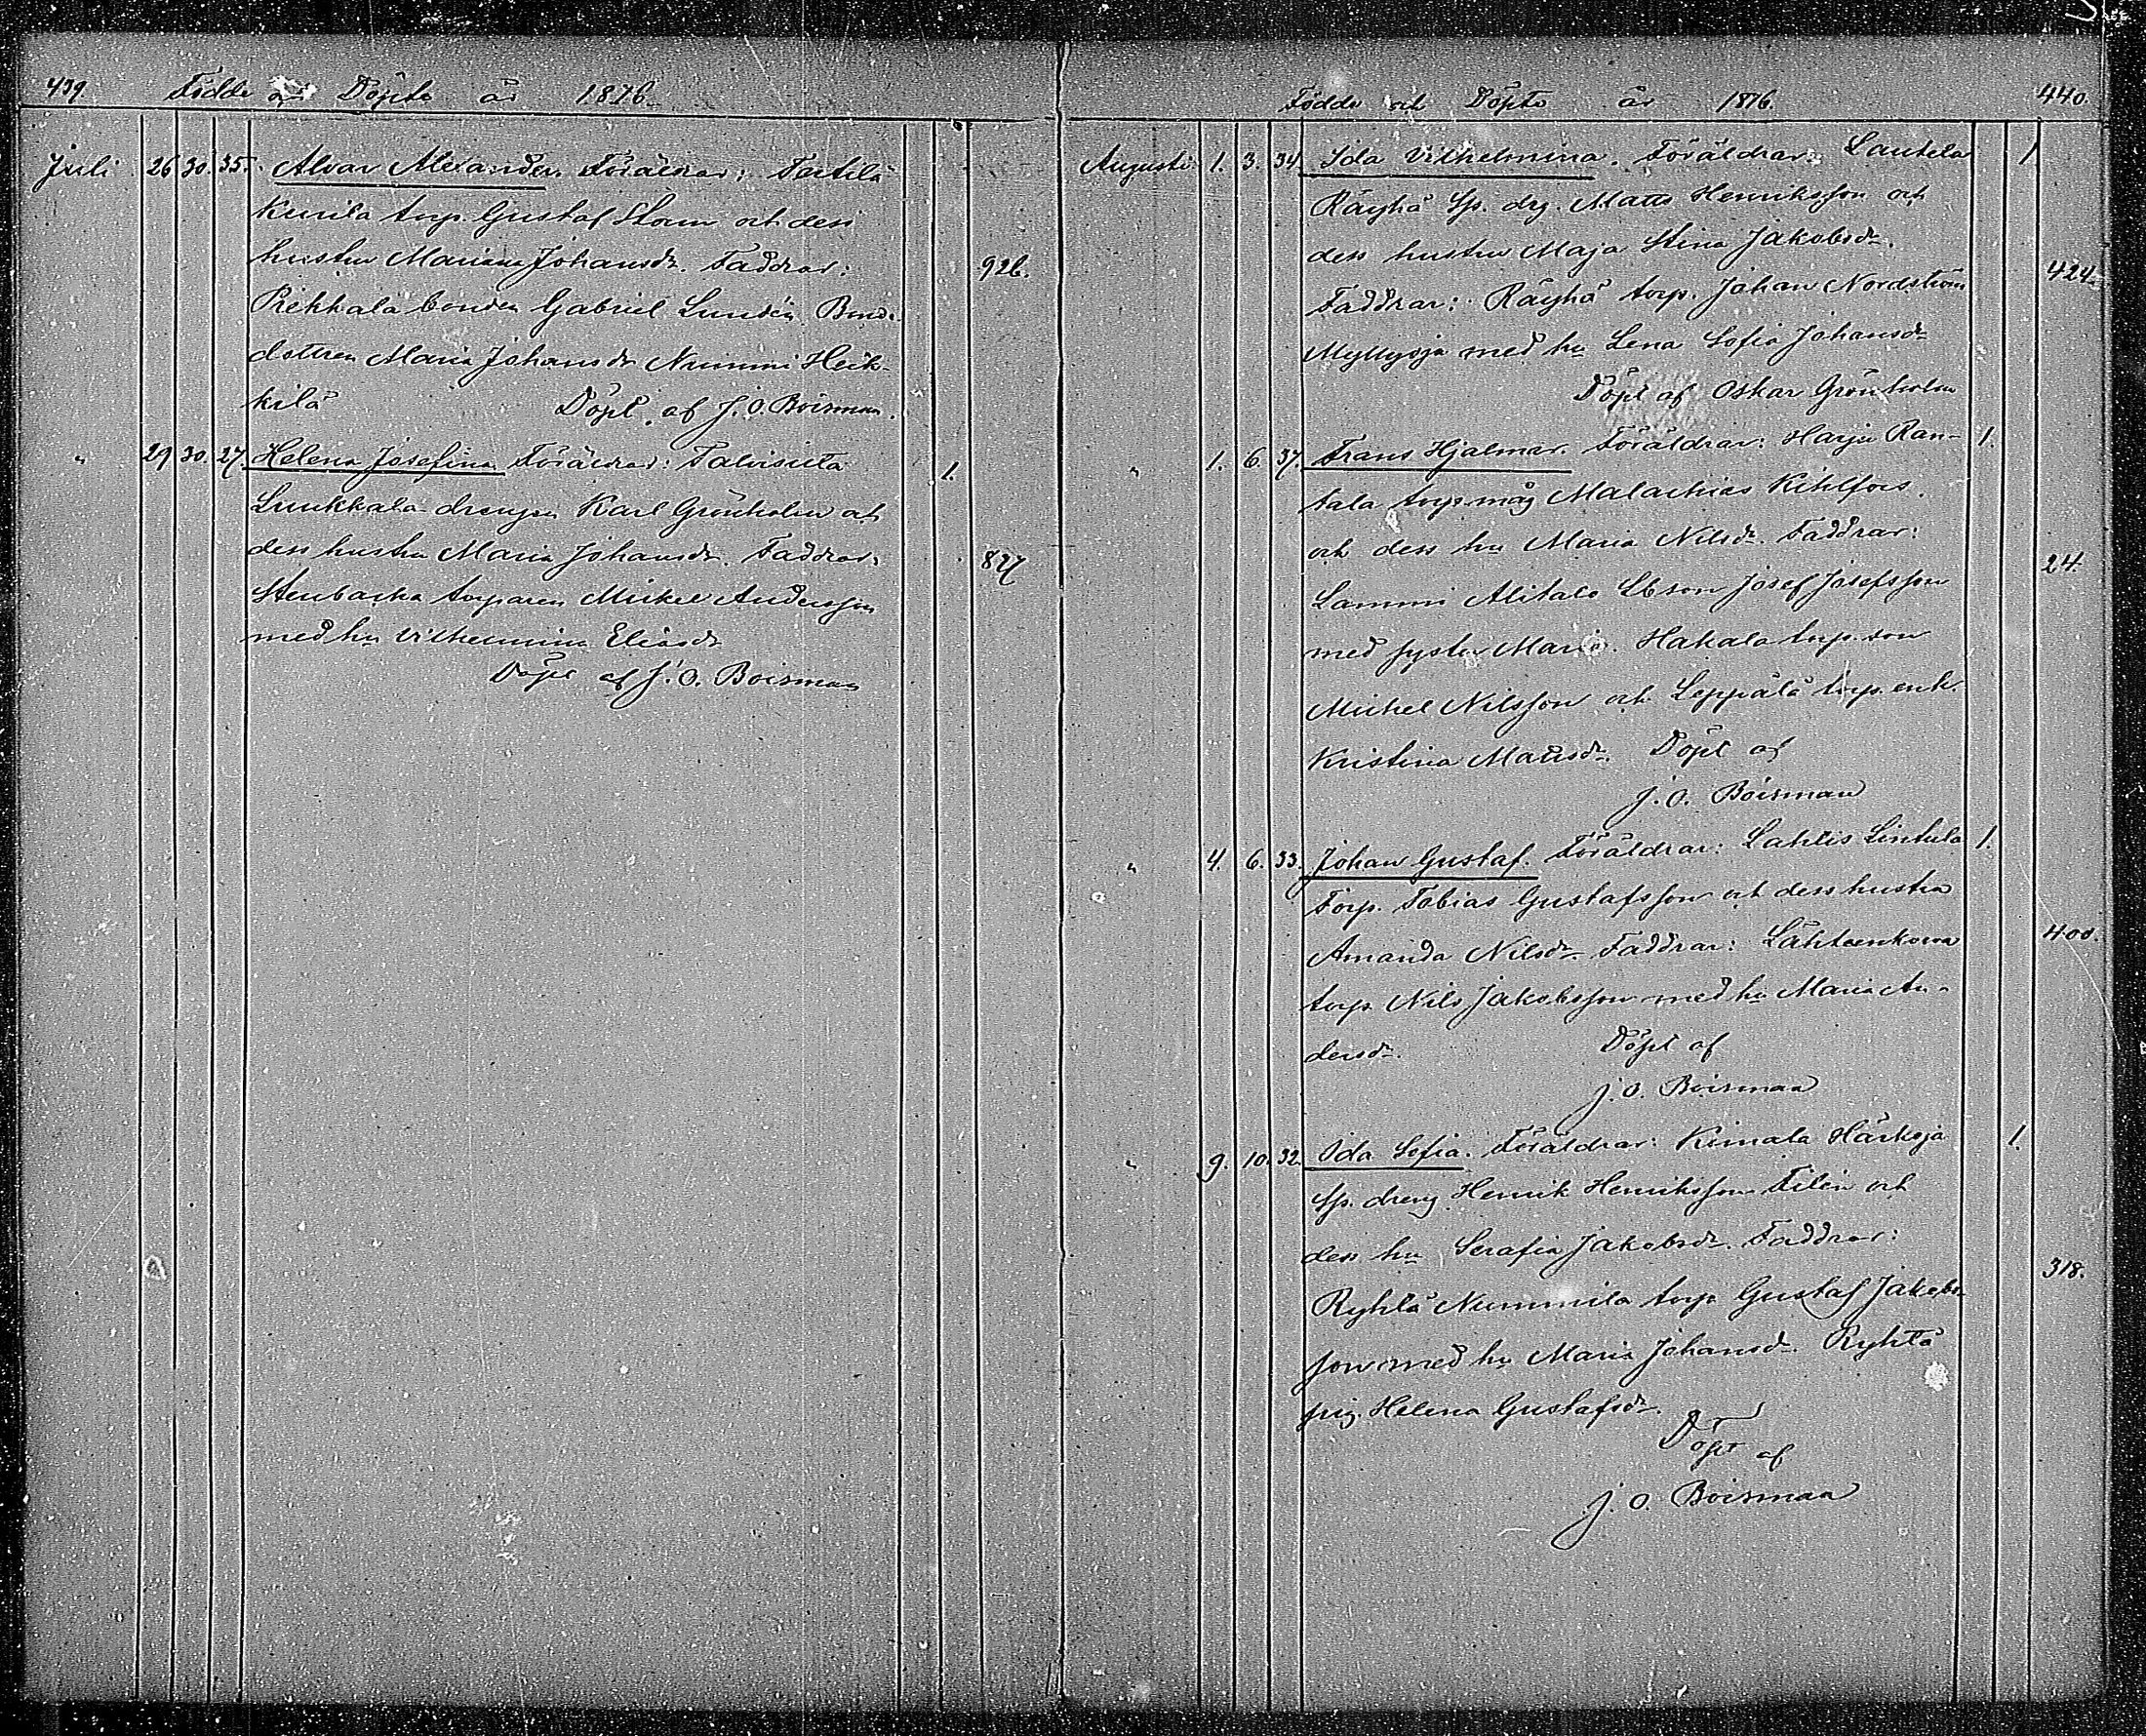 439. Födde och Döpte år 1876.
Juli 26 30. 35. Alvar Alexander. Föräldrar: Tortilä
Kurila torp. Gustaf Storm och dess
hustru Mariana Johansdr. Faddrar:
926.
Pirkkala bonden Gabriel Lundén Bond-
dottren Maria Johansdr Nummi Heik-
kilä Döpt af J. O. Boisman.
" 29 30. 27. Helena Josefina Föräldrar: Talvisilta 1.
Luukkala drengen Karl Grönholm och
dess hustru Maria Johansdr. Faddrar:
827
Stenbacka torparen Mickel Andersson
med hu Vilhelmina Eliasdr
Döpt af J. O. Boisman
Födde och Döpte år 1876. 440.
Augusti 1. 3. 34. Ida Vilhelmina. Föräldrar: Lautela 1
Räyhä Sp. drg. Matts Henriksson och
dess hustru Maja Stina Jakobsdr.
424.
Faddrar: Räyhä torp. Johan Nordström
Myllyoja med hu Lena Sofia Johansdr
Döpt af Oskar Grönholm
" 1. 6. 37. Frans Hjalmar. Föräldrar: Harju Ran- 1.
tala torp.måg Malachias Kihlfors.
och dess hu Maria Nilsdr. Faddrar:
24.
Lammi Alitalo Lbson Josef Josefsson
med syster Maria. Hakala torp. son
Michel Nilsson och Leppälä torp. enk.
Kristina Mattsdr. Döpt af
J. O. Boisman
" 4. 6. 33. Johan Gustaf. Föräldrar: Lahtis Lintula 1.
Torp. Tobias Gustafsson och dess hustru
Amanda Nilsdr Faddrar: Lähteenkorva
400.
torp. Nils Jakobsson med hu Maria An-
dersdr. Döpt af
J. O. Boisman
" 9. 10. 32. Ida Sofia. Föräldrar: Kimala Härkoja 1.
Sp. dreng Henrik Henriksson Filén och
dess hu Serafia Jakobsdr. Faddrar:
318.
Ryhtä Nummila torp Gustaf Jakobs-
son med hu Maria Johansdr. Ryhtä
pig. Helena Gustafsdr.
Döpt af
J. O. Boisman